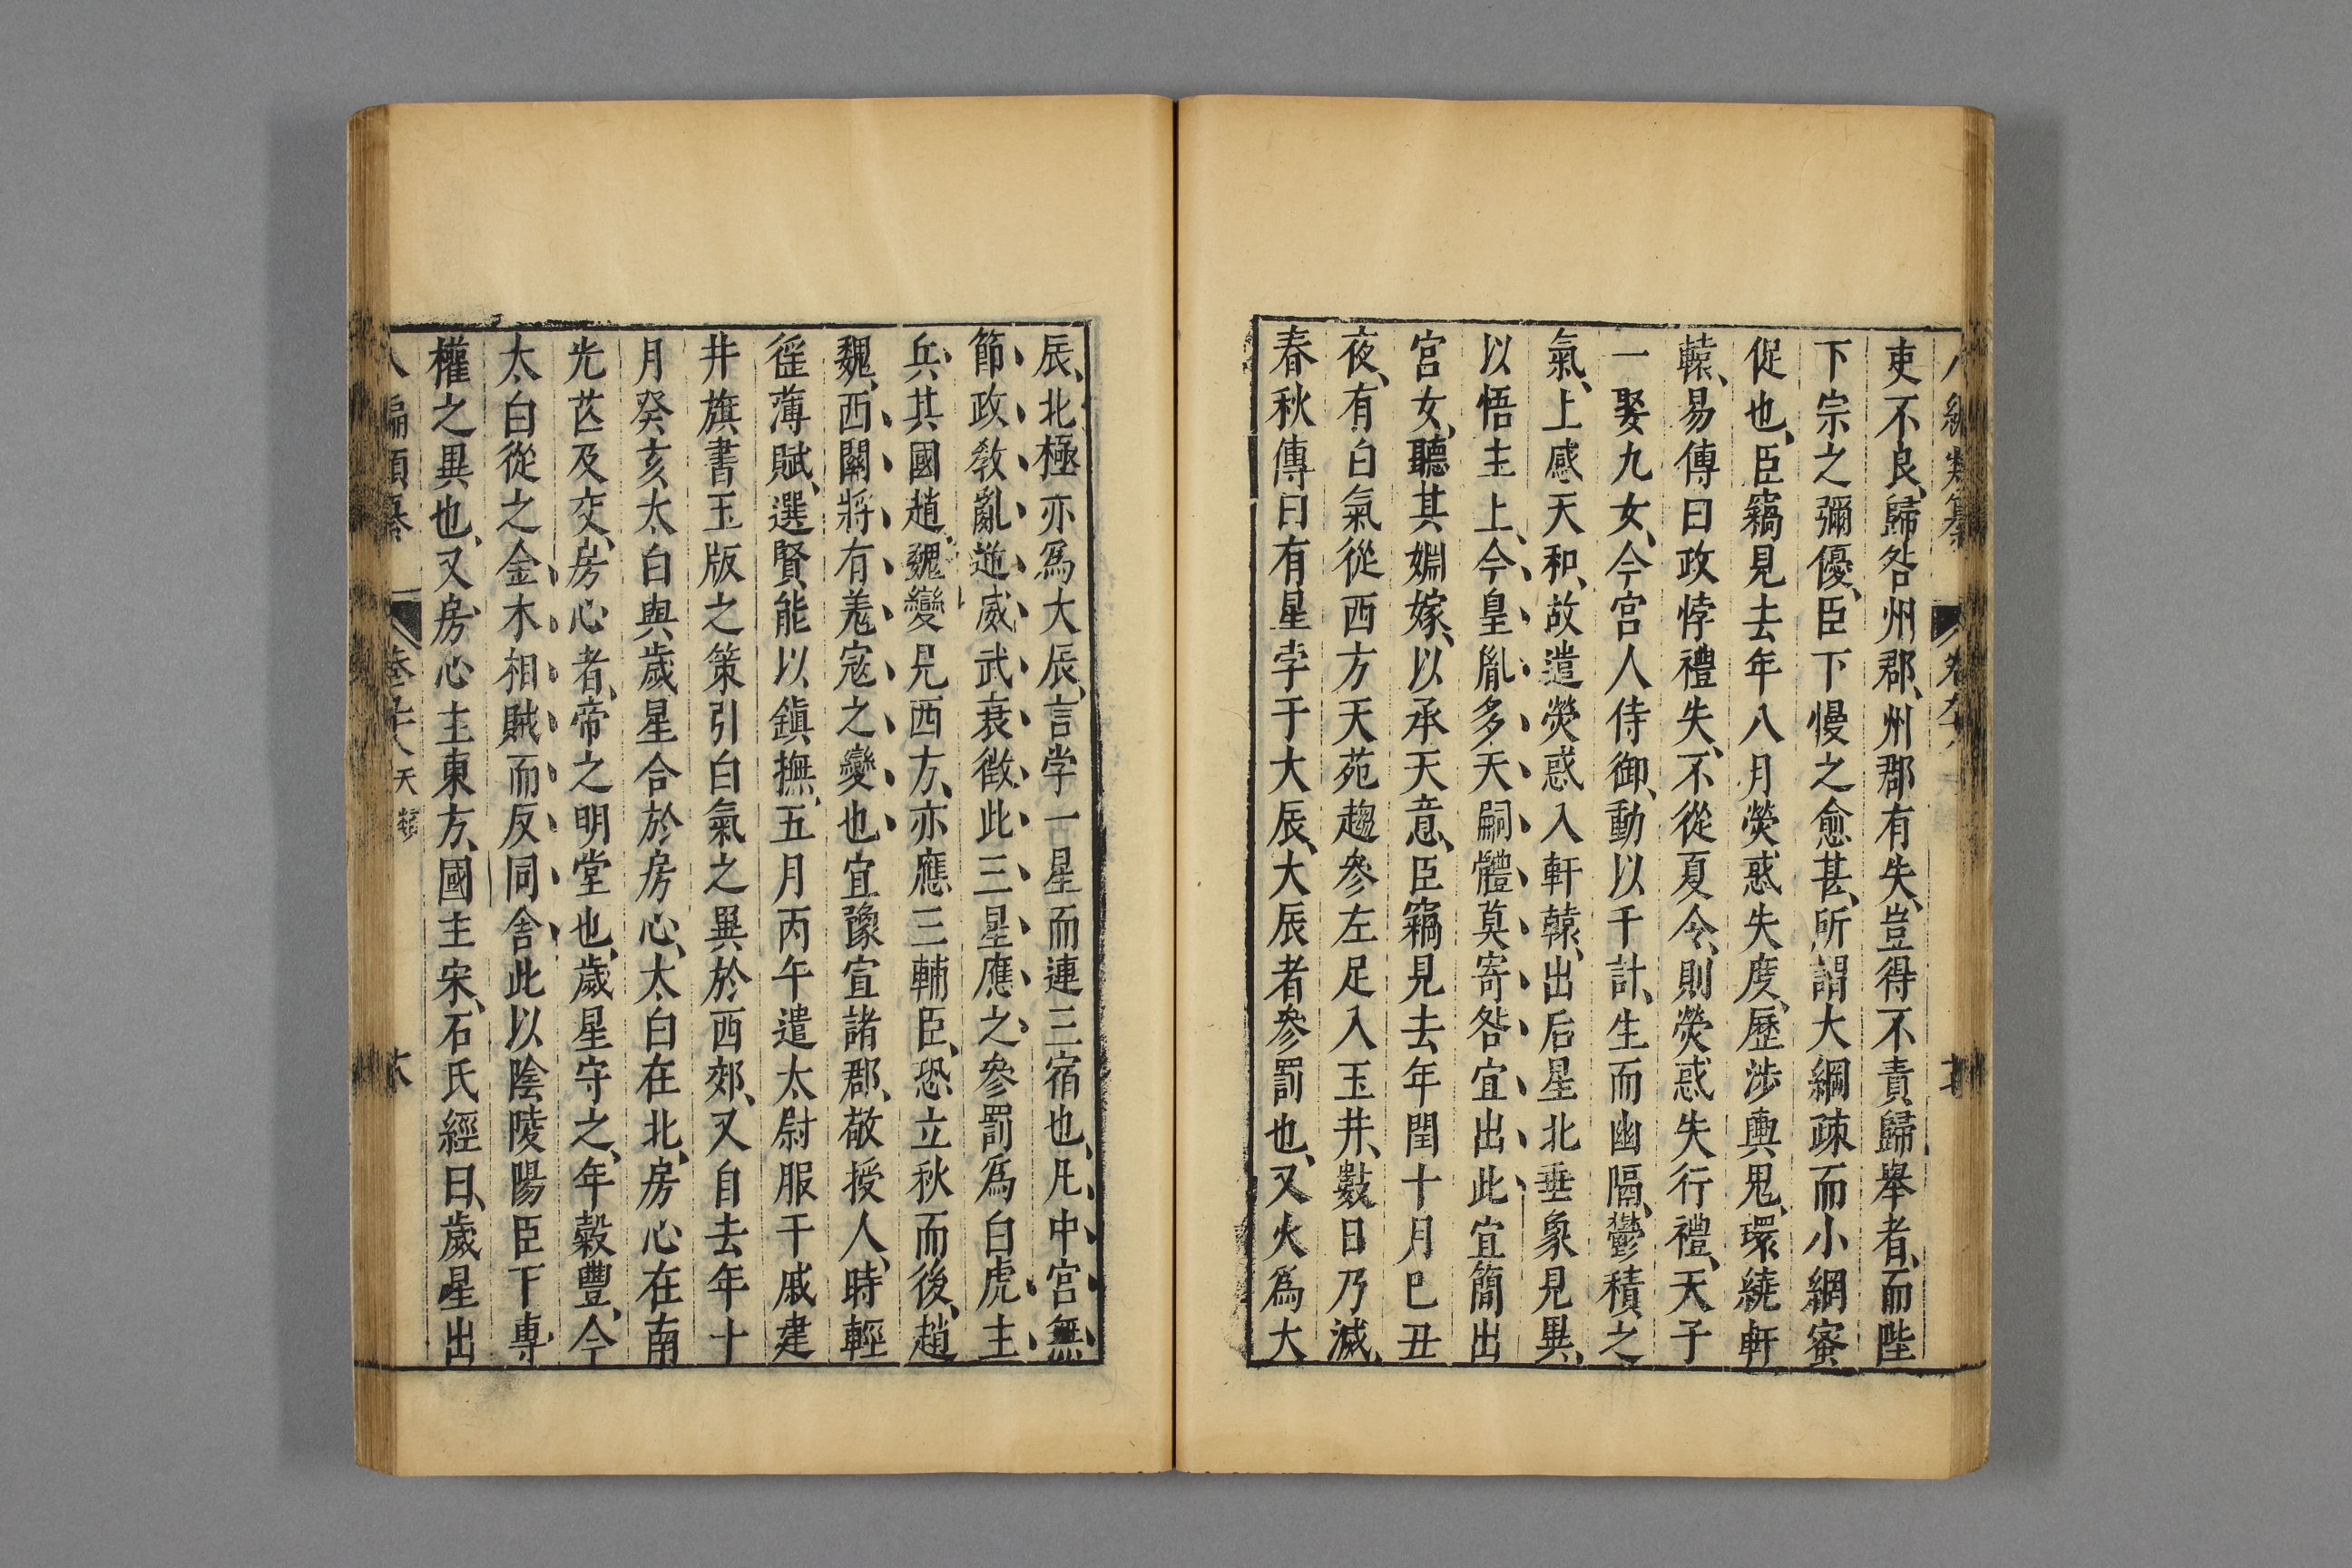 吏不良、歸咎州郡、州郡有失、豈得不責歸舉者、而陛
下宗之彌優、臣下慢之愈甚、所謂大綱疎而小綱密
促也、臣竊見去年八月熒惑失度、歷涉輿鬼、環繞軒
轅、易傳曰政悖禮失、不從夏令、則熒惑失行禮、天子
一娶九女、今宮人侍御、動以千計、生而幽隔、鬱積之
氣、上感天和、故遣熒惑入軒轅、出后星北垂象見異、
以悟主上、今皇胤多夭嗣體莫寄咎宜出此宜簡出
宮女、聽其婣嫁、以承天意、臣竊見去年閏十月巳丑
夜、有白氣從西方天苑趨參左足入玉井、數日乃滅、
春秋傳曰有星孛于大辰、大辰者參罰也、又火爲大
辰、北極亦爲大辰、言孛一星而連三宿也、凡中宮無
節政教亂逆威武衰徵此三星應之參罰爲白虎主
兵其國趙、魏變見西方、亦應三輔臣、恐立秋而後、趙
魏、西關將有羗寇之變也宜豫宣諸郡、敬授人時輕
徭薄賦、選賢能以鎭撫、五月丙午遣太尉服干戚建
井旗書玉版之策引白氣之異於西郊、又自去年十
月癸亥太白與歲星合於房心、太白在北、房心在南
光芒及交、房心者、帝之明堂也、歲星守之、年穀豐、今
太白從之金木相賊而反同舍此以陰陵陽臣下專
權之異也、又房心主東方、國主宋、石氏經曰、歲星出